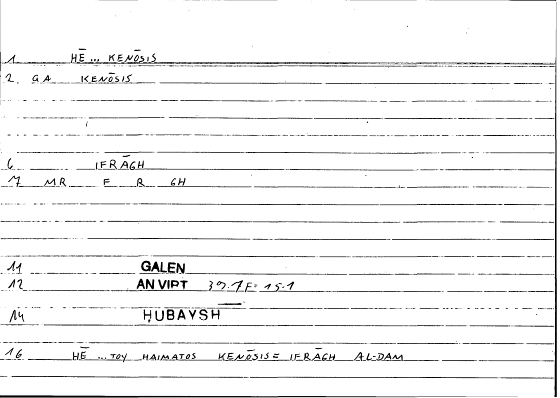 1 HĒ ... KENŌSIS
2. GA KENŌSIS
6 IFRĀGH
7 MR F R GH
11 GALEN
12 AN VIRT 39.7F= 15.1
14 HUBAYSH
16 HĒ ... TOY HAIMATOS KENŌSIS = IFRĀGH AL-DAM